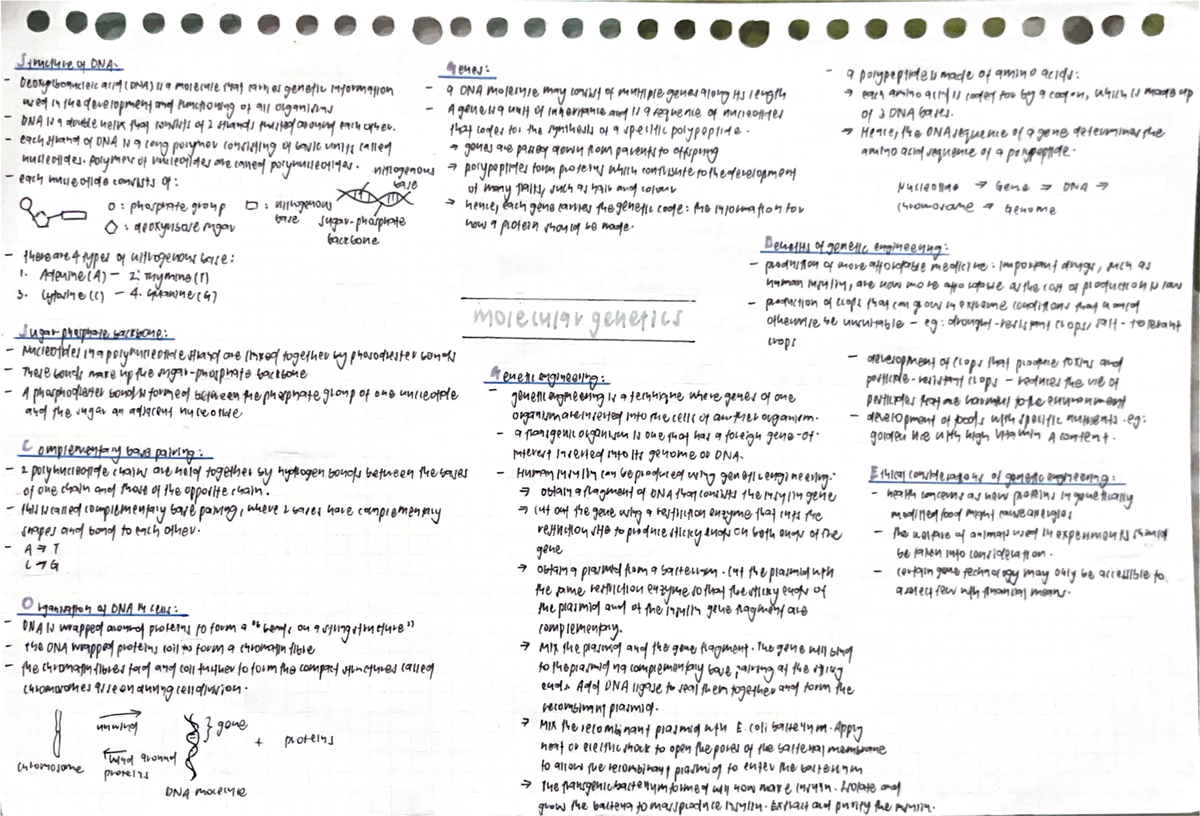 Structure of DNA:
- Deoxyribonucleic acid (DNA) is a molecule that carries genetic information
used in the development and functioning of all organisms
- DNA is a double helix that consists of 2 strands twisted around each other.
- each strand of DNA is a long polymer consisting of basic units called
nucleotides. Polymers of nucleotides are called polynucleotides.
- each nucleotide consists of:
O : phosphate group
□ : nitrogenous
base
⬠ : deoxyribose sugar
nitrogenous
base
sugar-phosphate
backbone
- There are 4 types of nitrogenous base:
1. Adenine (A) — 2. Thymine (T)
3. Cytosine (C) — 4. Guanine (G)
Sugar phosphate backbone:
- Nucleotides in a polynucleotide strand are linked together by phosodiester bonds
- These bonds make up the sugar-phosphate backbone
- A phosphodiester bond is formed between the phosphate group of one nucleotide
and the sugar an adjacent nucleotide
Complementary base pairing:
- 2 polynucleotide chains are held together by hydrogen bonds between the bases
of one chain and those of the opposite chain.
- this is called complementary base pairing, where 2 bases have complementary
shapes and bond to each other.
- A → T
C → G
Organisation of DNA in cells:
- DNA is wrapped around proteins to form a "beads on a string structure"
- the DNA wrapped proteins coil to form a chromatin fibre
- the chromatin fibres fold and coil further to form the compact structures called
chromosomes as seen during cell division.
chromosome
unwind
wind around
proteins
gene
+ proteins
DNA molecule
Genes:
- a DNA molecule may consist of multiple genes along its length
- A gene is a unit of inheritance and is a sequence of nucleotides
that codes for the synthesis of a specific polypeptide.
→ genes are passed down from parents to offspring
→ polypeptides form proteins which contribute to the development
of many traits such as hair and colour
→ hence, each gene carries the genetic code: the information for
how a protein should be made.
molecular genetics
Genetic engineering:
- genetic engineering is a technique where genes of one
organism are inserted into the cells of another organism.
- a transgenic organism is one that has a foreign gene-of-
interest inserted into its genome or DNA.
- Human insulin can be produced using genetic engineering.
→ obtain a fragment of DNA that consists the insulin gene
→ cut out the gene using a restriction enzyme that cuts the
restriction site to produce sticky ends on both ends of the
gene
→ obtain a plasmid from a bacterium. Cut the plasmid with
the same restriction enzyme so that the sticky ends of
the plasmid and of the insulin gene fragment are
complementary.
→ Mix the plasmid and the gene fragment. The gene will bind
to the plasmid via complementary base pairing at the sticky
ends. Add DNA ligase to seal them together and form the
recombinant plasmid.
→ Mix the recombinant plasmid with E. coli bacterium. Apply
heat or electric shock to open the pores of the bacterial membrane
to allow the recombinant plasmid to enter the bacterium
→ The transgenic bacterium formed will now make insulin. Isolate and
grow the bacteria to mass produce insulin. Extract and purify the insulin.
- a polypeptide is made of amino acids:
→ each amino acid is coded for by a codon, which is made up
of 3 DNA bases.
→ Hence, the DNA sequence of a gene determines the
amino acid sequence of a polypeptide.
Nucleotide → Gene → DNA →
Chromosome → Genome
Benefits of genetic engineering:
- production of more affordable medicine: important drugs, such as
human insulin, are now more affordable as the cost of production is low
- production of crops that can grow in extreme conditions that would
otherwise be unsuitable — eg: drought-resistant crops salt-tolerant
crops
- development of crops that produce toxins and
pesticide-resistant crops — reduces the use of
pesticides that are harmful to the environment
- development of foods with specific nutrients. eg:
golden rice with high vitamin A content.
Ethical considerations of genetic engineering:
- health concerns as new proteins in genetically
modified food might cause allergies
- the welfare of animals used in experiments should
be taken into consideration.
- certain gene technology may only be accessible to
a select few with financial means.